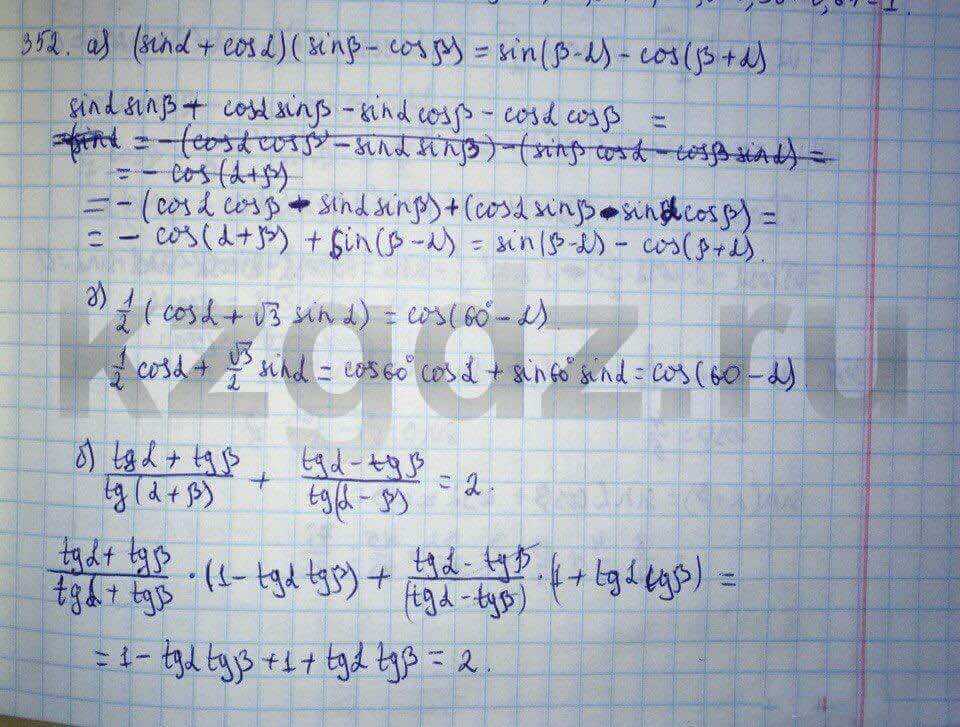 352. а) (sinα + cosα)(sinβ - cosβ) = sin(β-α) - cos(β+α)
sinα sinβ + cosα sinβ - sinα cosβ - cosα cosβ =
= - (cosα cosβ - sinα sinβ) - (sinβ cosα - cosβ sinα) =
= - cos(α+β)
= - (cosα cosβ - sinα sinβ) + (cosα sinβ - sinα cosβ) =
= - cos(α+β) + sin(β-α) = sin(β-α) - cos(β+α).
г) 1/2 (cosα + √3 sinα) = cos(60° - α).
1/2 cosα + √3/2 sinα = cos60° cosα + sin60° sinα = cos(60 - α)
kzgdz.ru
б) (tgα + tgβ)/(tg(α+β)) + (tgα - tgβ)/(tg(α-β)) = 2.
(tgα + tgβ)/(tgα + tgβ) · (1 - tgα tgβ) + (tgα - tgβ)/(tgα - tgβ) · (1 + tgα tgβ) =
= 1 - tgα tgβ + 1 + tgα tgβ = 2.